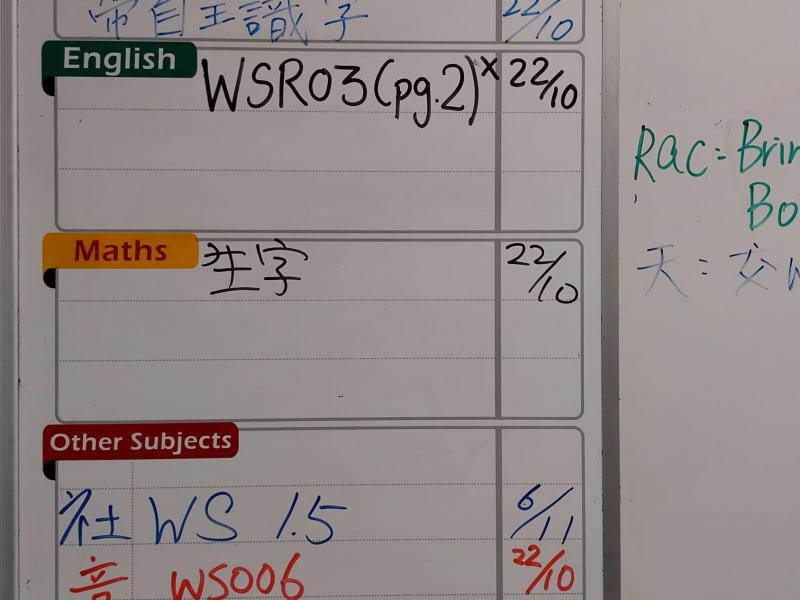 帶自主識字 22/10
English WSR03(pg.2)x 22/10
Maths 生字 22/10
Other Subjects
社 WS 1.5 6/11
音 WS006 22/10
RaC: Brin
Bo
天: 交 W